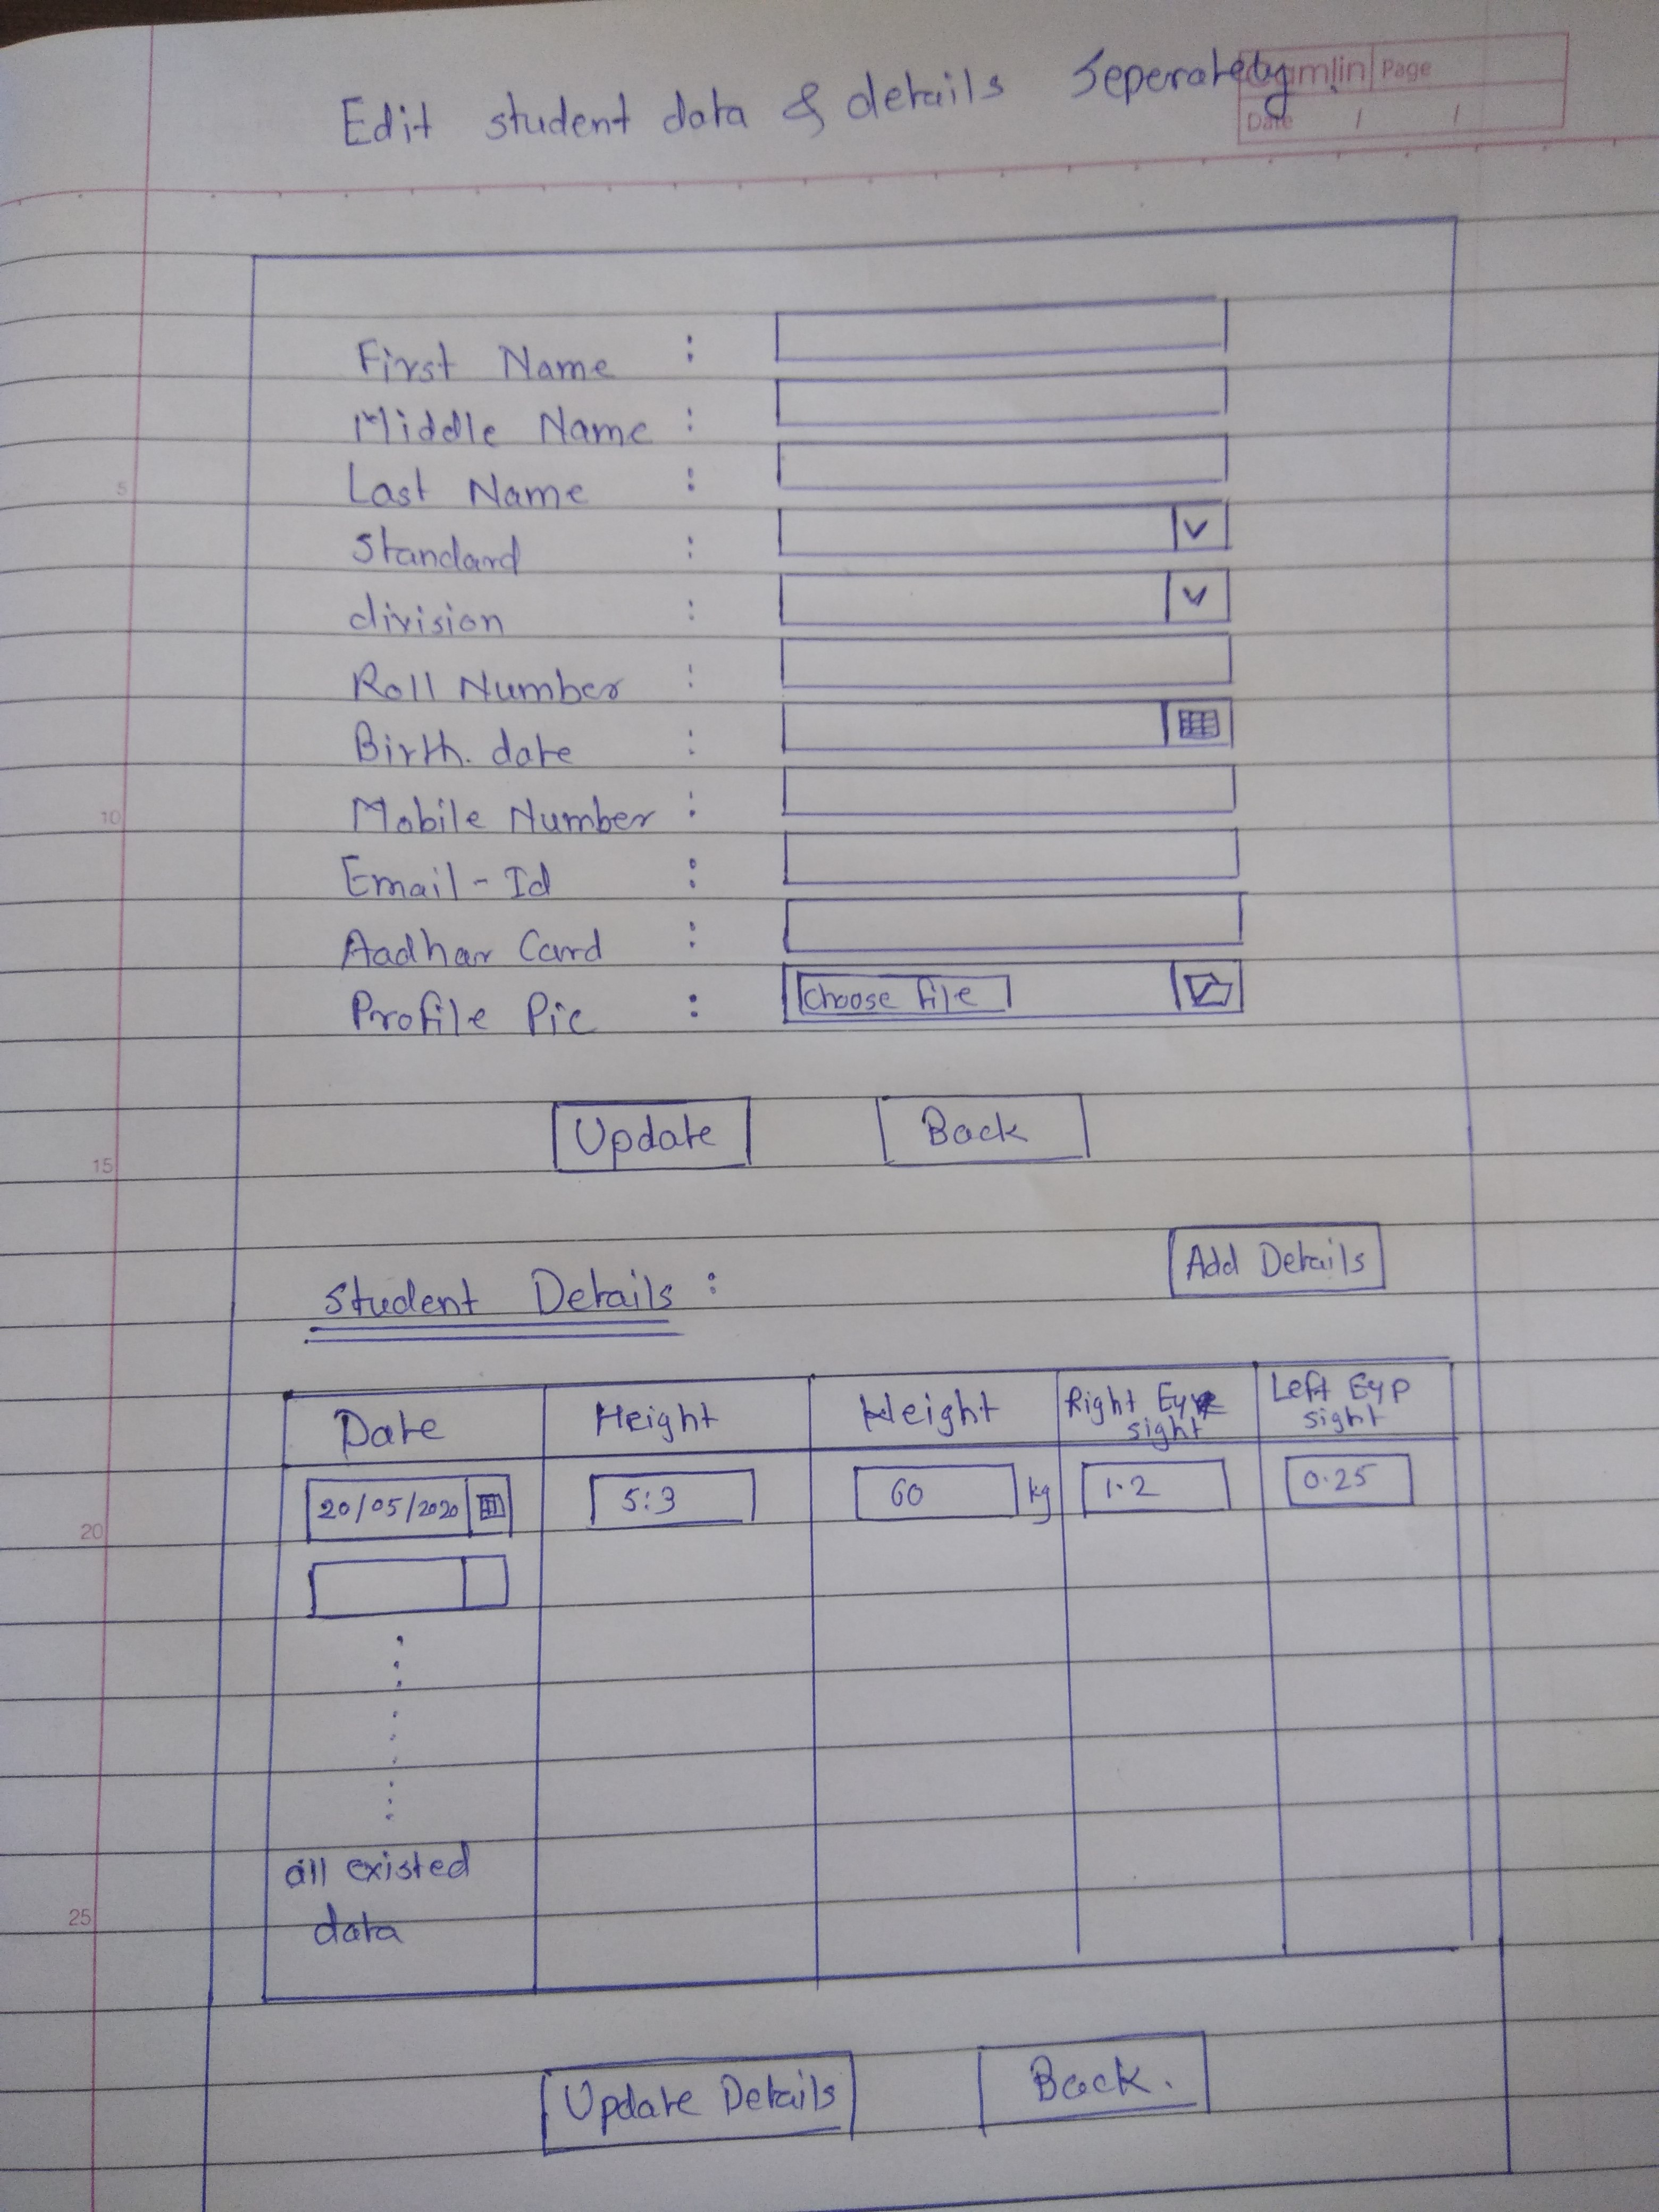 Camlin Page
Date / /
Edit student data & details Seperately.
First Name :
Middle Name :
Last Name :
Standard :
division :
Roll Number :
Birth. date :
Mobile Number :
Email-Id :
Aadhar Card :
Profile Pic : Choose file
Update Back
Add Details
Student Details :
Date Height Weight Right Eye sight Left Eye sight
20/05/2020 5:3 60 kg 1.2 0.25
all existed
data
Update Details Back.
5
10
15
20
25